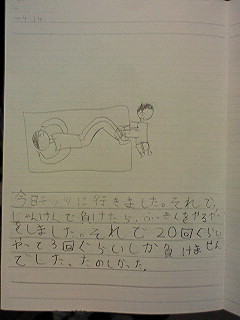 今日　に行きました。それで、
じゃんけんで負けたら、ふっきんをやるや
をしました。それで20回ぐらい
やって3回ぐらいしか負けません
でした。たのしかった。